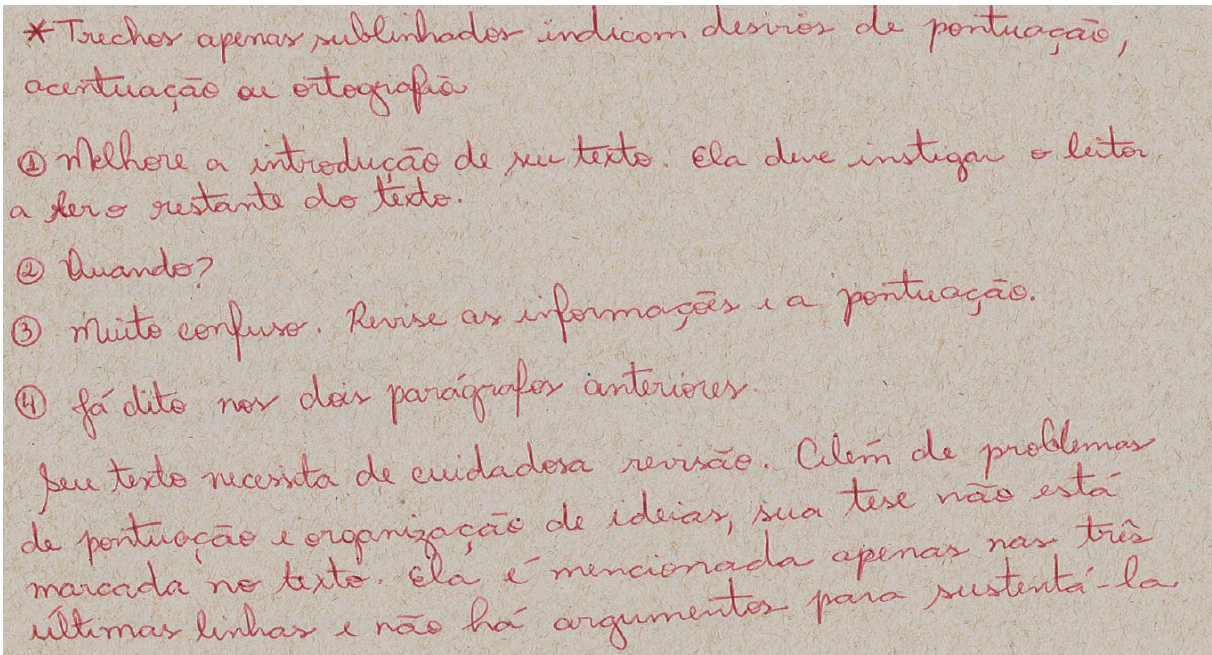 * Trechos apenas sublinhados indicam desvios de pontuação,
acentuação ou ortografia
① Melhore a introdução de seu texto. Ela deve instigar o leitor
a ler o restante do texto.
② Quando?
③ Muito confuso. Revise as informações e a pontuação.
④ Já dito nos dois parágrafos anteriores.
Seu texto necessita de cuidadosa revisão. Além de problemas
de pontuação e organização de ideias, sua tese não está
marcada no texto. Ela é mencionada apenas nas três
últimas linhas e não há argumentos para sustentá-la